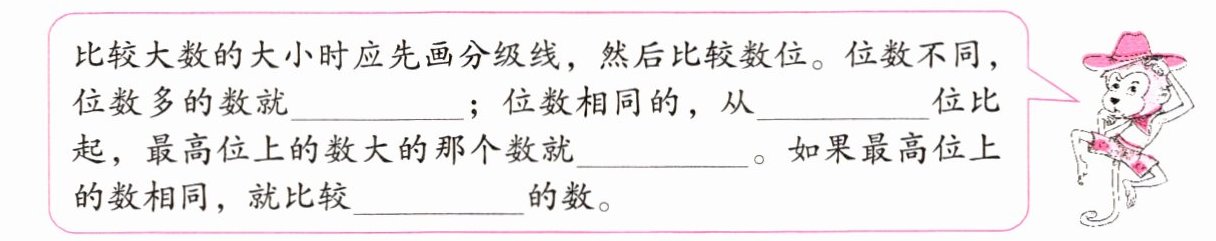 比较大数的大小时应先画分级线，然后比较数位。位数不同，
位数多的数就__________；位数相同的，从__________位比
起，最高位上的数大的那个数就__________。如果最高位上
的数相同，就比较__________的数。